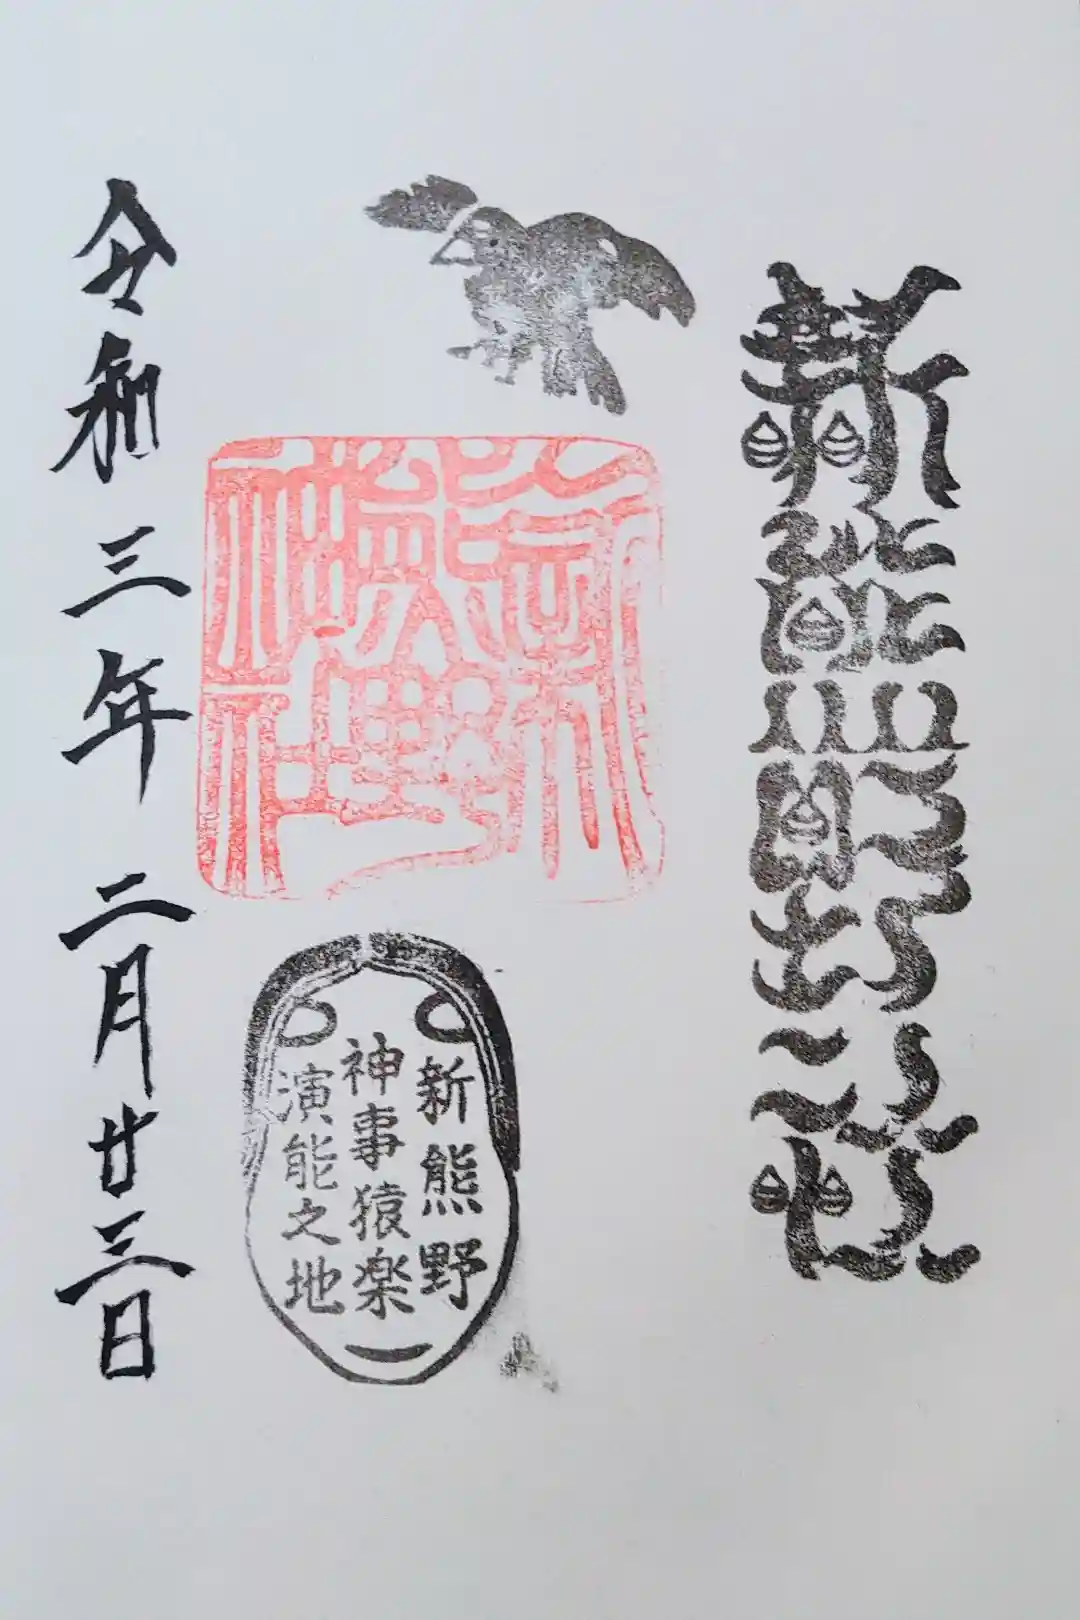 新熊野
新
熊野
神社
新熊野
神事猿楽
演能之地
令和三年二月廿三日